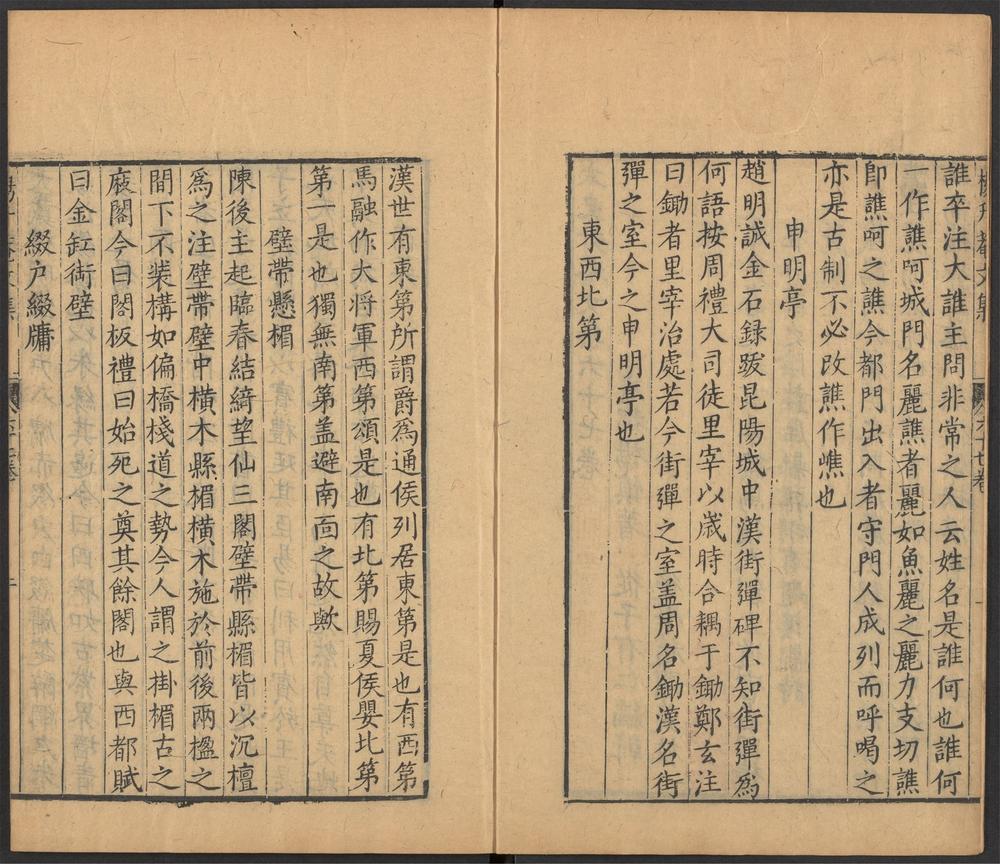 誰卒注大誰主問非常之人云姓名是誰何也誰何
一作譙呵城門名麗譙者麗如魚麗之麗力支切譙
卽譙呵之譙今都門出入者守門人成列而呼喝之
亦是古制不必改譙作嶕也
申明亭
趙明誠金石録跋昆陽城中漢街彈碑不知街彈爲
何語按周禮大司徒里宰以歲時合耦于鋤鄭玄注
曰鋤者里宰治處若今街彈之室盖周名鋤漢名街
彈之室今之申明亭也
東西北第
漢世有東第所謂爵爲通侯列居東第是也有西第
馬融作大將軍西第頌是也有北第賜夏侯嬰比第
第一是也獨無南第盖避南面之故歟
壁帶懸楣
陳後主起臨春結綺望仙三閣壁帶縣楣皆以沉檀
爲之注壁帶壁中橫木縣楣橫木施於前後兩楹之
間下不裝構如偏橋棧道之勢今人謂之掛楣古之
庪閣今曰閣板禮曰始死之奠其餘閣也與西都賦
曰金缸衘壁
綴户綴牗